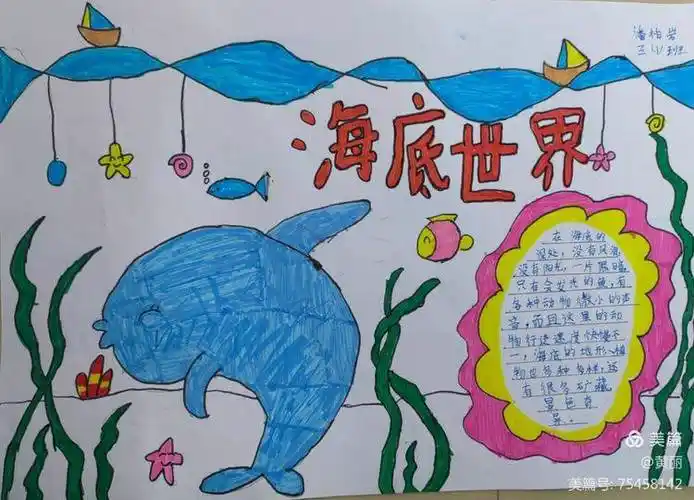 潘柏岩
三(1)班
海底世界
在海底的
深处,没有风浪,
没有阳光,一片黑暗,
只有会发光的鱼,有
各种动物微小的声
音,而且这里的动
物行进速度快慢不
一,海底的地形、植
物也多种多样,还
有很多矿藏,
景色奇
异。
美篇
@黄丽
美篇号: 75458142